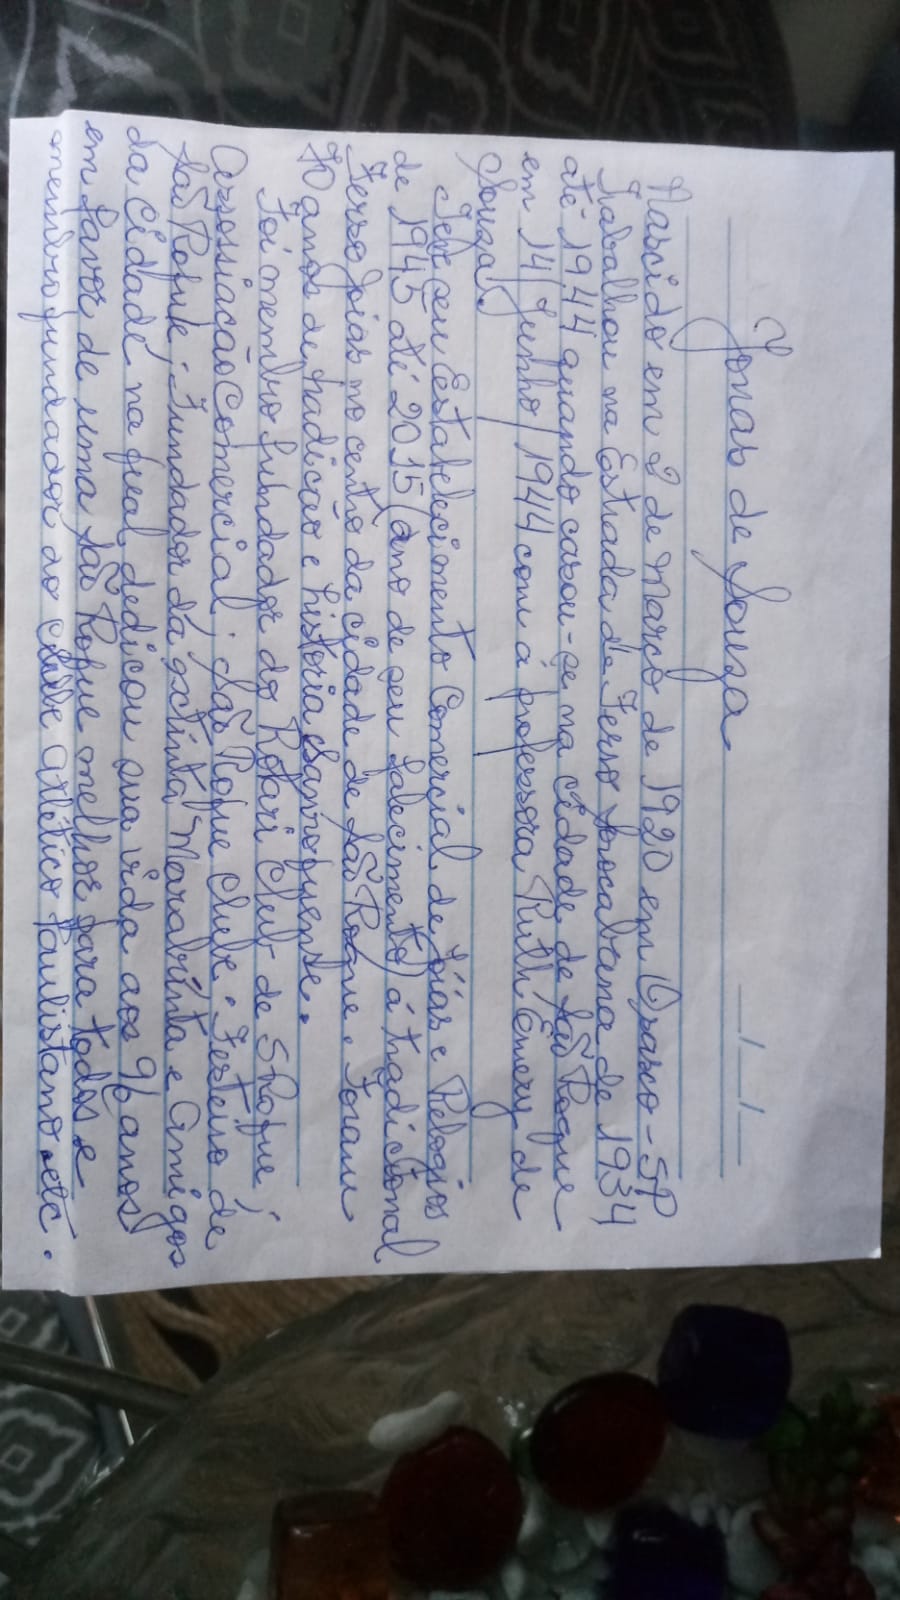 Jonas de Souza
Nascido em 2 de Março de 1920 em Osasco - SP
Trabalhou na Estrada de Ferro Sorocabana de 1934
até 1944 quando casou-se na cidade de São Roque
em 14/Junho/1944 com a professora Ruth Emery de
Souza.
Teve seu Estabelecimento Comercial de Jóias e Relogios
de 1945 até 2015 (ano de seu falecimento) á tradicional
Ferro Joias no centro da cidade de São Roque. Foram
70 anos de tradição e historia Sanroquense.
Foi membro fundador do Rotari Club de S Roque;
Assossiação Comercial; São Roque Clube; Festeiro de
São Roque; Fundador da extinta Marabrinta e Amigos
da Cidade na qual dedicou sua vida aos 96 anos
em favor de uma São Roque melhor para todos e
membro fundador do Clube Atlético Paulistano etc.